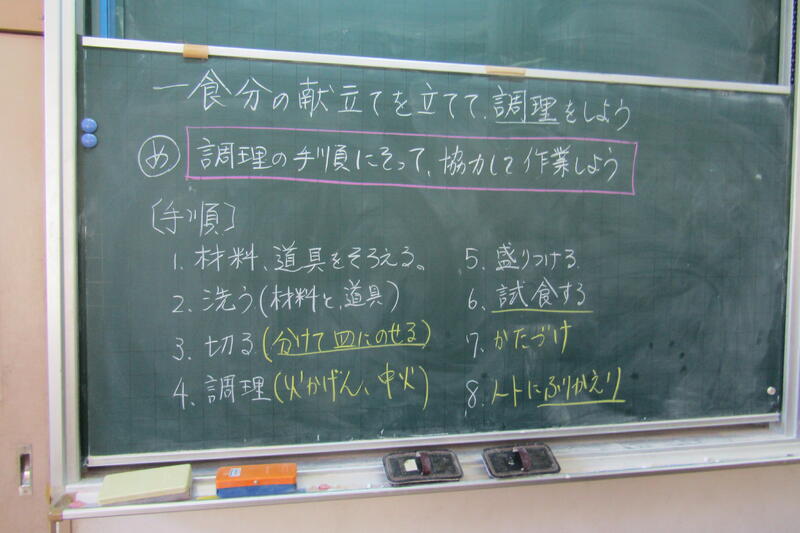 一食分の献立てを立てて、調理をしよう
め 調理の手順にそって、協力して作業しよう
〔手順〕
1. 材料、道具をそろえる。
2. 洗う(材料と、道具)
3. 切る(分けて皿にのせる)
4. 調理(火かげん、中火)
5. 盛りつける
6. 試食する
7. かたづけ
8. ノートにふりかえり